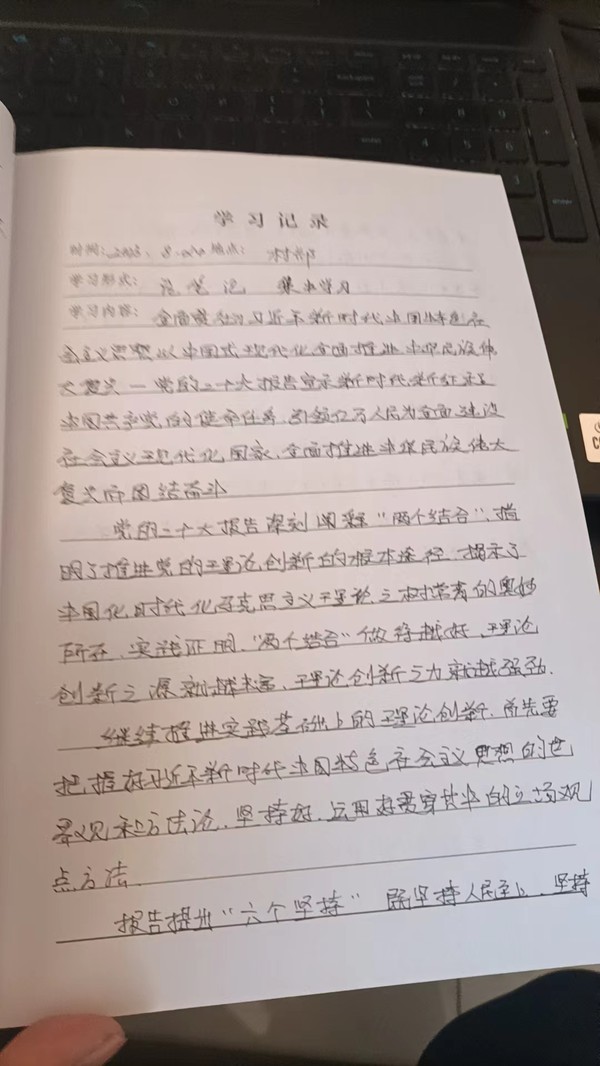 学习记录
时间: 2023. 8. 地点: 村部
学习形式: 记笔记 集中学习
学习内容: 全面贯彻习近平新时代中国特色社
会主义思想以中国式现代化全面推进中华民族伟
大复兴一党的二十大报告宣示新时代新征程
中国共产党的使命任务,引领亿万人民为全面建设
社会主义现代化国家、全面推进中华民族伟大
复兴而团结奋斗
党的二十大报告深刻阐释“两个结合”,指
明了推进党的理论创新的根本途径,揭示了
中国化时代化马克思主义理论之树常青的奥妙
所在、实践证明,“两个结合”做得越好,理论
创新之源就越丰富、理论创新之力就越强劲.
继续推进实践基础上的理论创新.首先要
把握好习近平新时代中国特色社会主义思想的世
界观和方法论,坚持好、运用好贯穿其中的立场观
点方法.
报告提出“六个坚持” 既坚持人民至上、坚持